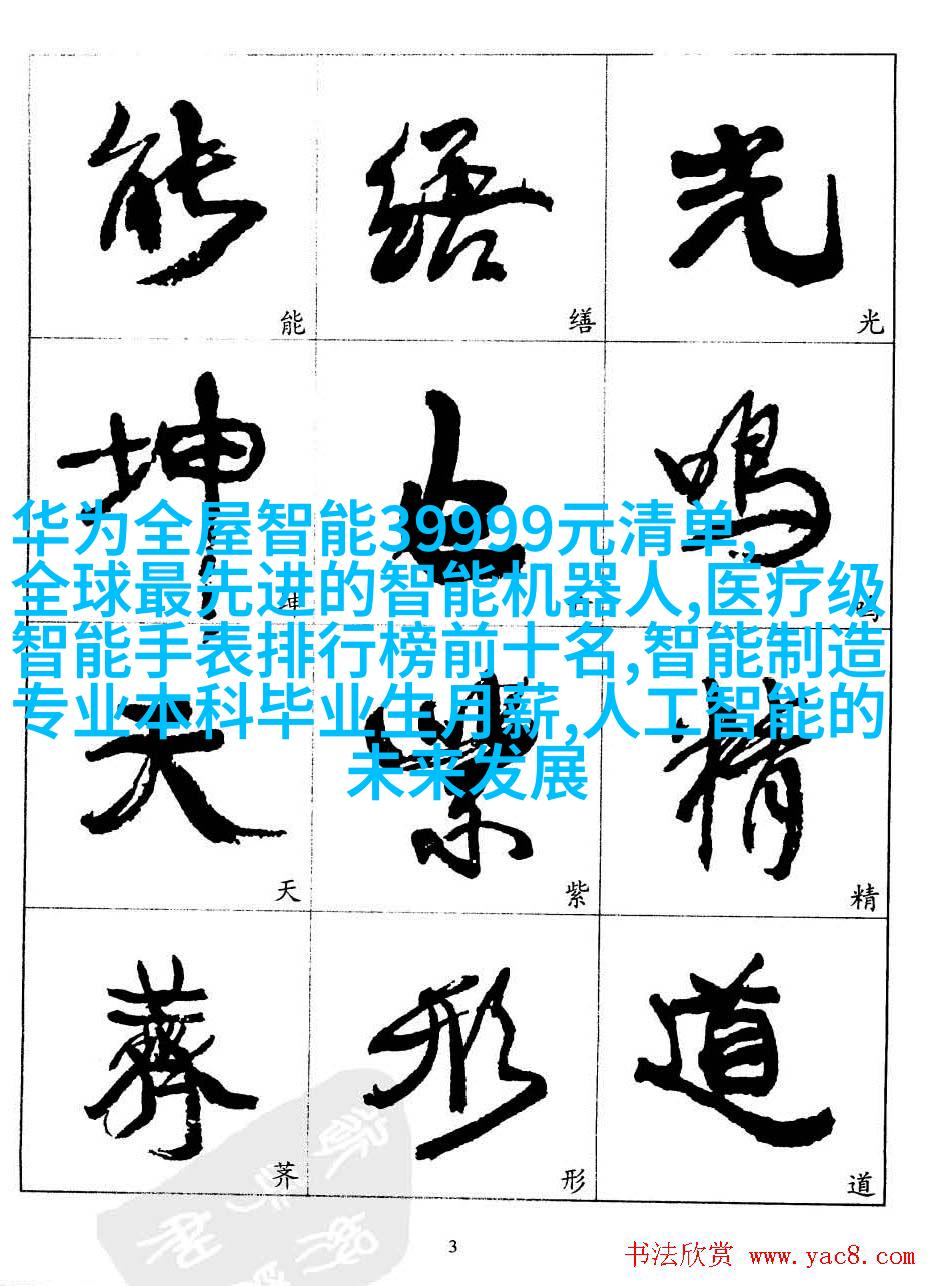 能 缮 光
能 缮 光
坤 鸣
坤 鸣
华为全屋智能39999元清单,
全球最先进的智能机器人,医疗级
智能手表排行榜前十名,智能制造
专业本科毕业生月薪,人工智能的
未来发展
天 紫 精
天 紫 精
荠 形 道
荠 形 道
3
书法欣赏 www.yac8.com